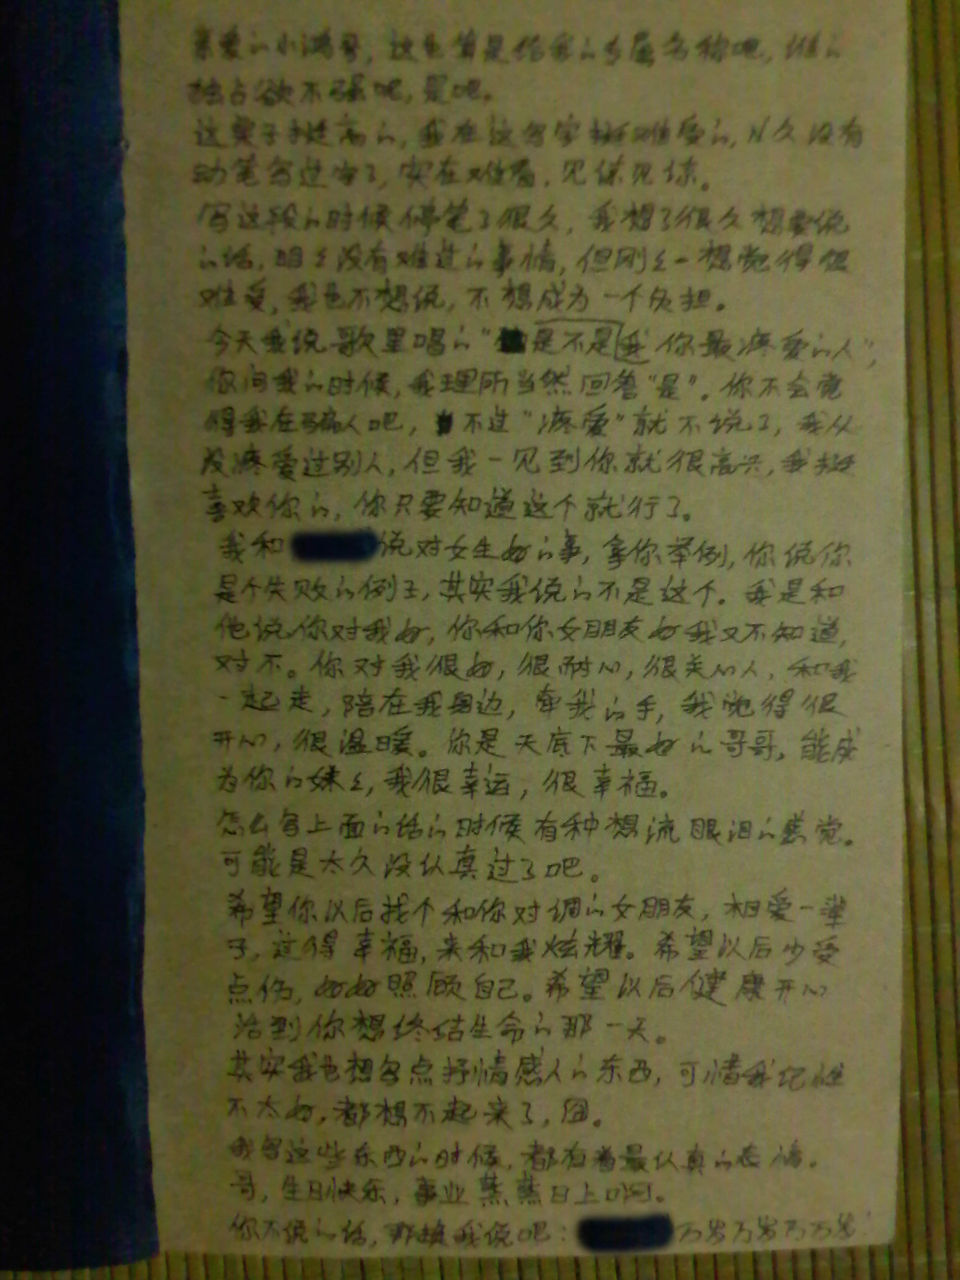 亲爱的小鸿哥，这也算是给我的专属名称吧，谁的
独占欲不强呢，是吧。
这凳子挺高的，我在这写字挺难受的，N久没有
动笔写过字了，实在难看，见谅见谅。
写这段的时候停笔了很久，我想了很久想要说
的话，明明没有难过的事情，但刚刚一想觉得很
难受，我也不想说，不想成为一个负担。
今天我说歌里唱的“是不是我你最疼爱的人”，
你问我的时候，我理所当然回答“是”。你不会觉
得我在骗人吧，不过“疼爱”就不说了，我从
没疼爱过别人，但我一见到你就很高兴，我挺
喜欢你的，你只要知道这个就行了。
我和 说对女生好的事，拿你举例，你说你
是个失败的例子，其实我说的不是这个。我是和
他说你对我好，你和你女朋友好我又不知道，
对不。你对我很好，很耐心，很关心人，和我
一起走，陪在我身边，牵我的手，我觉得很
开心，很温暖。你是天底下最好的哥哥，能成
为你的妹妹，我很幸运，很幸福。
怎么写上面的话的时候有种想流眼泪的感觉。
可能是太久没认真过了吧。
希望你以后找个和你对调的女朋友，相爱一辈
子，过得幸福，来和我炫耀。希望以后少受
点伤，好好照顾自己。希望以后健康开心
活到你想终结生命的那一天。
其实我也想写点抒情感人的东西，可惜我记性
不太好，都想不起来了，囧。
我写这些东西的时候，都有着最认真的表情。
哥，生日快乐，事业蒸蒸日上啊。
你不说的话，那换我说吧： 万岁万岁万万岁！